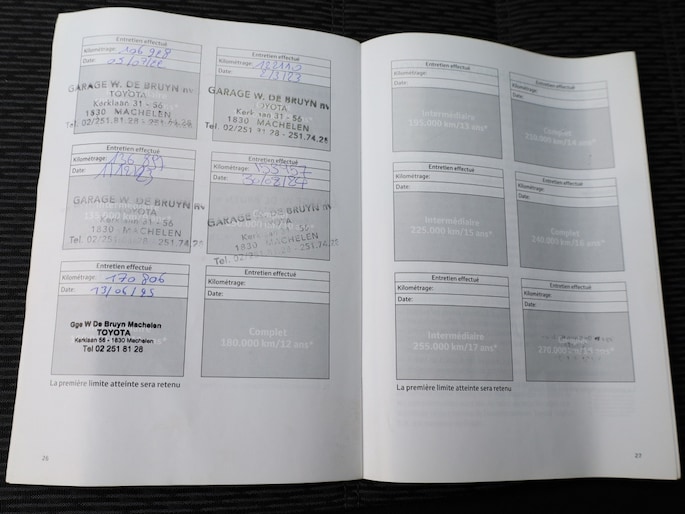 Entretien effectué
Kilométrage: 106 928
Date: 05/07/22
GARAGE W. DE BRUYN nv
TOYOTA
Kerklaan 31 - 56
1830 MACHELEN
Tel. 02/251 81 28 - 251.74.28
Entretien effectué
Kilométrage:
Date: 2/3/23
GARAGE W. DE BRUYN nv
TOYOTA
Kerklaan 31 - 56
1830 MACHELEN
Tel. 02/251 81.28 - 251.74.28
Entretien effectué
Kilométrage: 136.891
Date:
GARAGE W. DE BRUYN nv
TOYOTA
Kerklaan 31 - 56
1830 MACHELEN
Tel. 02/251 81.28 - 251.74
Entretien effectué
Kilométrage:
Date:
GARAGE W. DE BRUYN nv
TOYOTA
Kerklaan 31 - 56
1830 MACHELEN
Tel. 02/251 81.28 - 251.74.28
Entretien effectué
Kilométrage: 170.806
Date: 13/06/25
Gge W De Bruyn Machelen
TOYOTA
Kerklaan 56 - 1830 Machelen
Tel 02 251 81 28
Entretien effectué
Kilométrage:
Date:
Complet
180.000 km/12 ans*
La première limite atteinte sera retenu
26
Entretien effectué
Kilométrage:
Date:
Intermédiaire
195.000 km/13 ans*
Entretien effectué
Kilométrage:
Date:
Complet
210.000 km/14 ans*
Entretien effectué
Kilométrage:
Date:
Intermédiaire
225.000 km/15 ans*
Entretien effectué
Kilométrage:
Date:
Complet
240.000 km/16 ans*
Entretien effectué
Kilométrage:
Date:
Intermédiaire
255.000 km/17 ans*
Entretien effectué
Kilométrage:
Date:
270.000 km/18 ans*
La première limite atteinte sera retenu
27